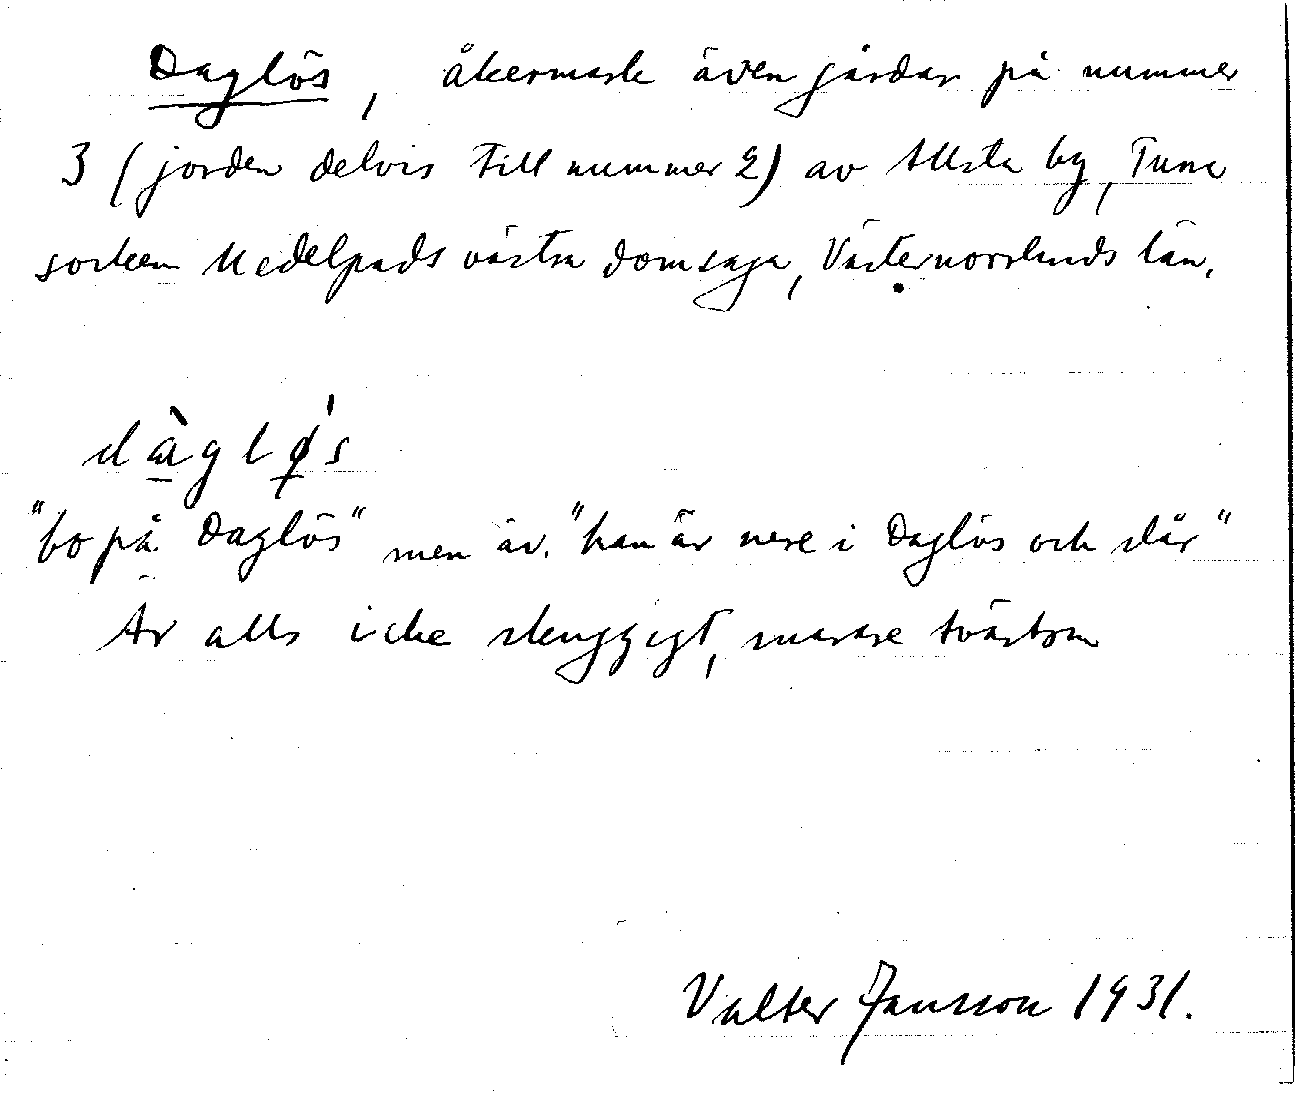 Daglös, åkermark även gårdar på nummer
3 (jorden delvis till nummer 2) av Allsta by, Tuna
socken Medelpads västra domsaga, Västernorrlands län.
dàglǿ̨s
"bo på Daglös" men äv. "han är nere i Daglös och slår"
Är alls icke skuggigt, snarare tvärtom
Valter Jansson 1931.